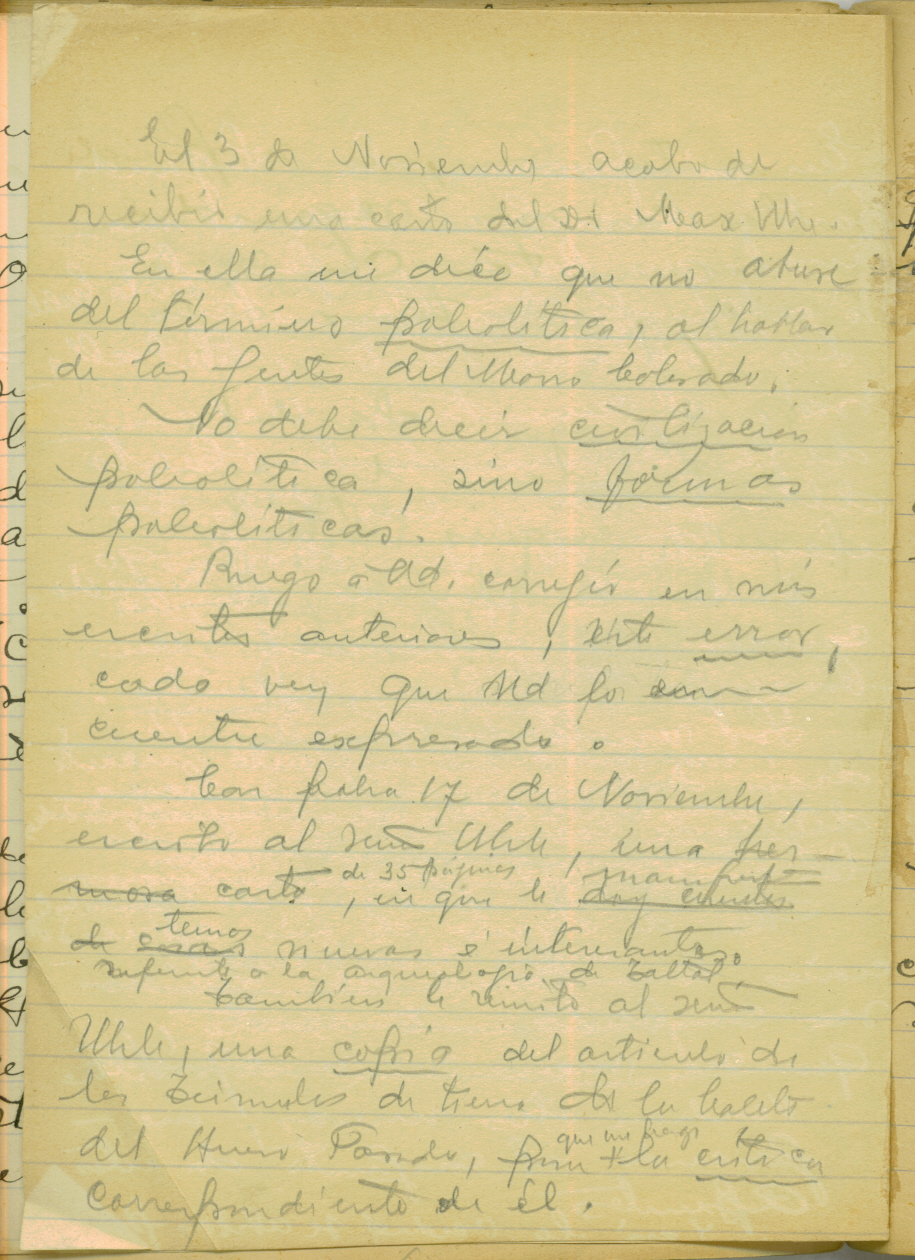 El 3 de Noviembre acabo de
recibir una carta del Dr Max Uhle.
En ella me dice que no abuse
del término paleolítica, al hablar
de las gentes del Morro Colorado.
No debe decir civilización
paleolítica, sino formas
paleolíticas.
Ruego a Ud. corregir en mis
escritos anteriores, este error,
cada vez que Ud lo en
cuentre expresado.
Con fecha 17 de Noviembre,
escribo al señor Uhle, una her-
mosa carta de 35 páginas, en que le doy cuenta
manifiesto
de cosas temas nuevos e interesantes.
referente a la arqueología de Taltal
También le remito al señor
Uhle, una copia del artículo de
los túmulos de tierra de la Caleta
del Hueso Parado, para que me haga la crítica
correspondiente de él.